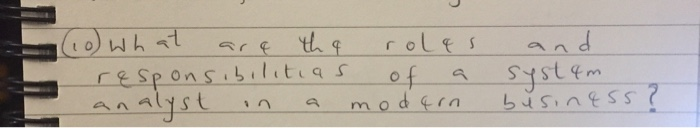 (10) What are the roles and
responsibilities of a system
analyst in a modern business?